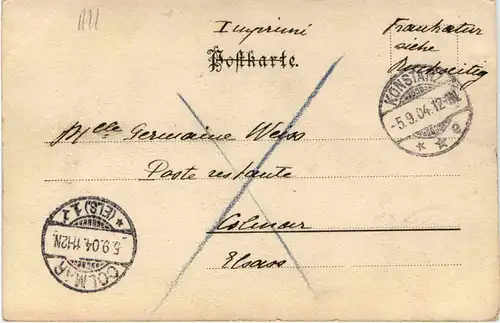 Imprimé
Frankatur
siehe
Rückseitig
Postkarte.
KONSTANZ
-5.9.04.12-1N.
* * e
Mlle Germaine Weiss
Poste restante
Colmar
Elsass
* (ELS) 1 *
5.9.04. 11-12N.
COLMAR